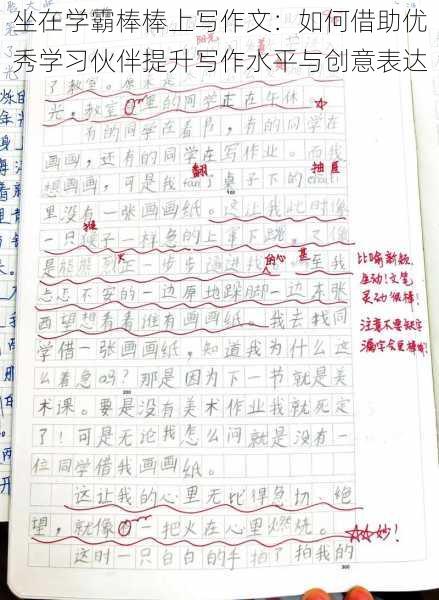 坐在学霸棒棒上写作文：如何借助优
秀学习伙伴提升写作水平与创意表达
光，教室里的同学正在午休
有的同学在看书，有的同学在
画画，还有的同学在写作业。而我
想画画，可是我fan 桌子下的chouti
翻
抽屉
100
里没有一张画画纸。这让我此时像
一只猴子一样急的上窜下跳，又像
是熊熊烈
一步一步逼进我
至我
的心
甚
忐忑不安的一边原地跺脚一边东张
西望想看看谁有画画纸。我去找同
学借一张画画纸，知道我为什么这
么着急吗？那是因为下一节就是美
200
术课。要是没有美术作业我就死定
了！可是无论我怎么问就是没有一
位同学借我画画纸。
这让我的心里无比得急切、绝
望，就像
一把火在心里燃烧。
妙！
这时一只白白的手拍了拍我的
300
比喻新颖，
生动！文笔
灵动很棒！
注意不要缺字
漏字会更棒哦！